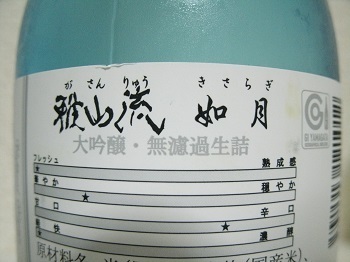 がさんりゅう きさらぎ
雅山流 如月
大吟醸・無濾過生詰
フレッシュ 熟成感
華やか 穏やか
甘口 辛口
軽快 濃醇
GI YAMAGATA